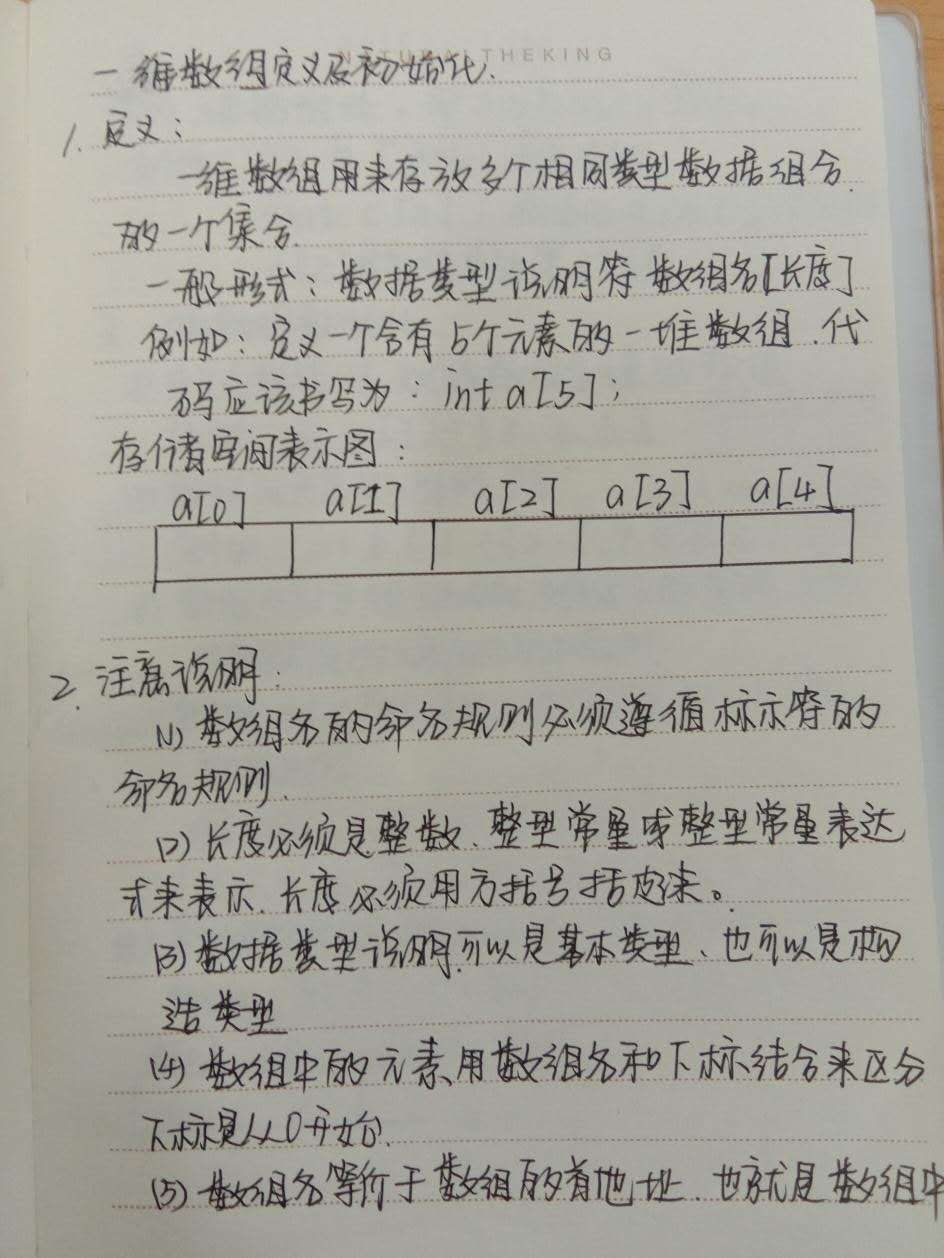 NATURALTHEKING
一维数组定义及初始化.
1. 定义:
一维数组用来存放多个相同类型数据组合
的一个集合.
一般形式: 数据类型说明符 数组名[长度]
例如: 定义一个含有5个元素的一维数组.代
码应该书写为: int a[5];
存储空间表示图:
a[0] a[1] a[2] a[3] a[4]
2. 注意说明:
(1) 数组名的命名规则必须遵循标示符的
命名规则.
(2) 长度必须是整数、整型常量或整型常量表达
式来表示.长度必须用方括号括起来。
(3) 数据类型说明.可以是基本类型、也可以是构
造类型
(4) 数组中的元素用数组名和下标结合来区分
下标是从0开始.
(5) 数组名等价于数组的首地址.也就是数组中